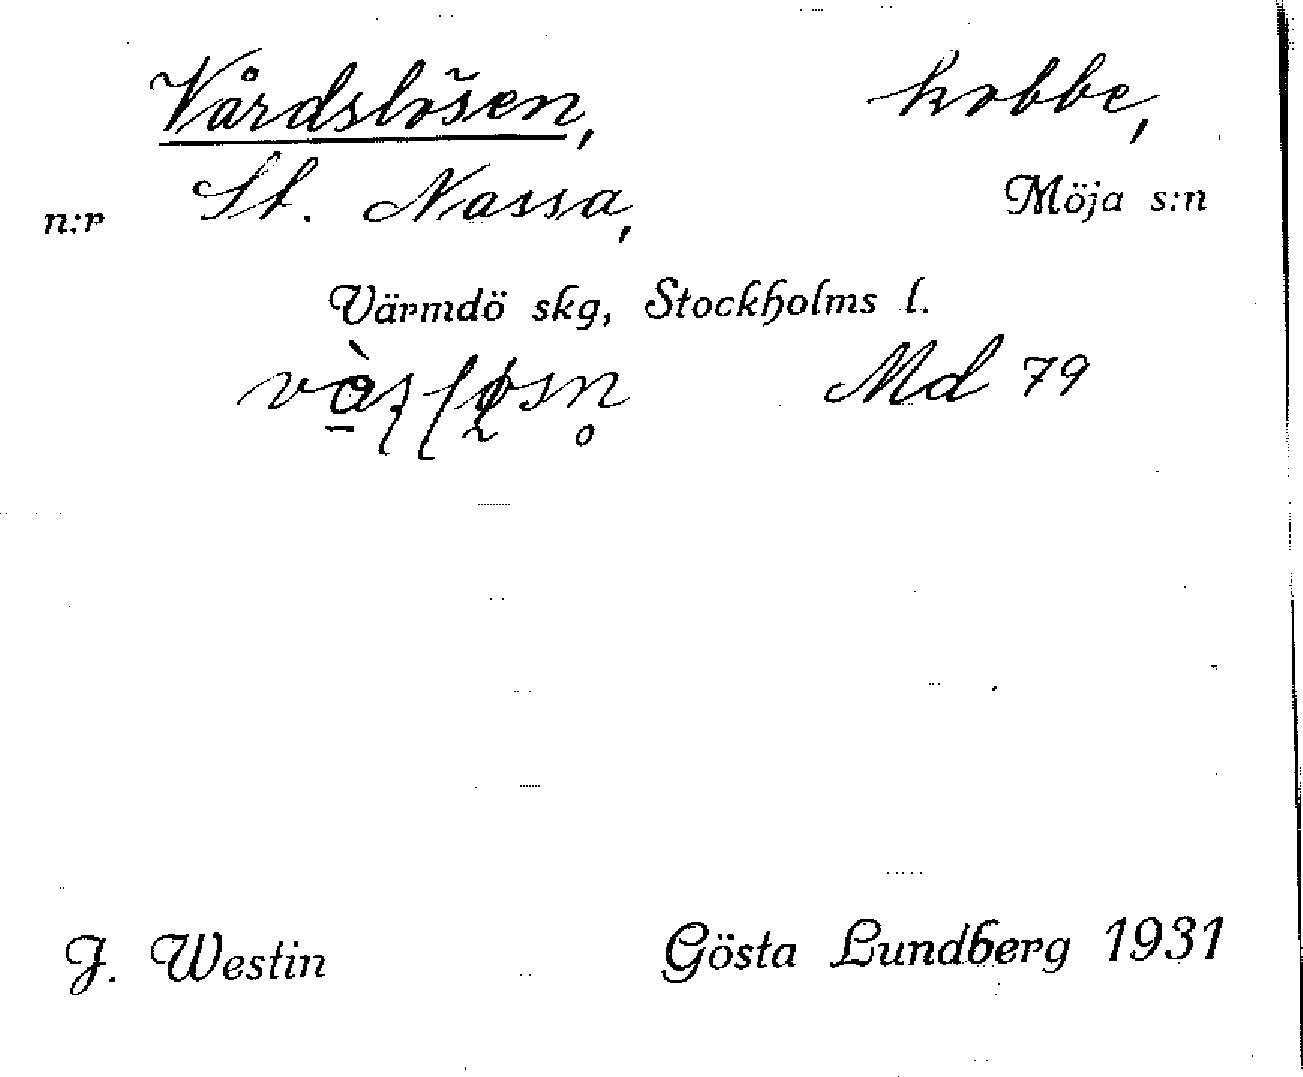 Vårdslösen, kobbe,
n:r St. Nassa, Möja s:n
Värmdö skg, Stockholms l.
Md 79
J. Westin Gösta Lundberg 1931